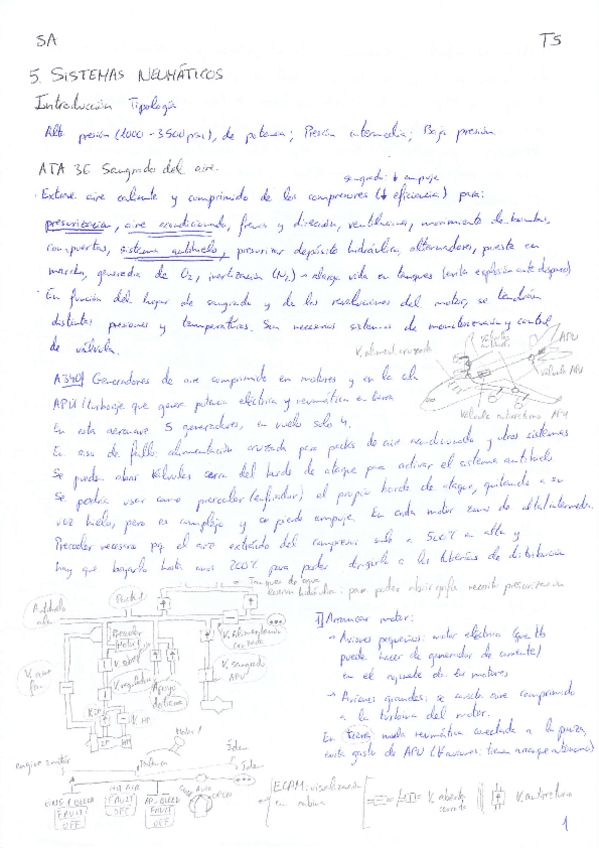 SA
T5
5. SISTEMAS NEUMÁTICOS
Introducción Tipología
Alta presión (1000-3500 psi), de potencia; Presión intermedia; Baja presión
ATA 36 Sangrado del aire.
sangrado: ↓ empuje
· Extrae aire caliente y comprimido de los compresores (↓ eficiencia) para:
presurización, aire acondicionado, frenos y dirección, ventilaciones, movimiento de bombas,
compuertas, sistema antihielo, presurizar depósito hidráulico, alternadores, puesta en
marcha, generador de O₂, inertización (N₂) → alarga vida en tanques (evita explosión ante disparo)
· En función del lugar de sangrado y de las revoluciones del motor, se tendrán
distintas presiones y temperaturas. Son necesarios sistemas de monitorización y control
de válvula.
V. aliment. cruzada
APU
Válvula APU
Válvula antirretorno APU
A340 Generadores de aire comprimido en motores y en la cola
APU (turboeje que genera potencia eléctrica y neumática en tierra
En esta aeronave 5 generadores, en vuelo solo 4.
En caso de fallo: alimentación cruzada para packs de aire acondicionado y otros sistemas
Se pueden abrir válvulas cerca del borde de ataque para activar el sistema antihielo
Se podría usar como precooler (enfriador) el propio borde de ataque, quitando a su
vez hielo, pero es complejo y se pierde empuje. En cada motor zona de alta/intermedia.
Precooler necesario pq el aire extraído del compresor sale a 500ºC en alta y
hay que bajarlo hasta unos 200ºC para poder dirigirlo a las tuberías de distribución
Tanques de agua
para poder abrir grifo necesito presurización
Antihielo
ala
Pack 1
Precooler
Motor 1
V. alimentación
cruzada
V. aire
fan
V. reguladora
V. sangrado
APU
Apoyo
de tierra
V. HP
IP
HP
1] Arrancar motor:
→ Aviones pequeños: motor eléctrico (que tb
puede hacer de generador de corriente)
en el arranque de los motores
→ Aviones grandes: se inyecta aire comprimido
a la turbina del motor.
En tierra: toma neumática conectada a la panza,
evita gasto de APU
Motor 1
Idem
Idem
engine 1 motor
ENG 1 BLEED
FAULT
OFF
HOT AIR
FAULT
OFF
APU BLEED
FAULT
OFF
AUTO
OPEN
ECAM: visualización
en cabina
V. abierta
cerrada
V. antirretorno
1